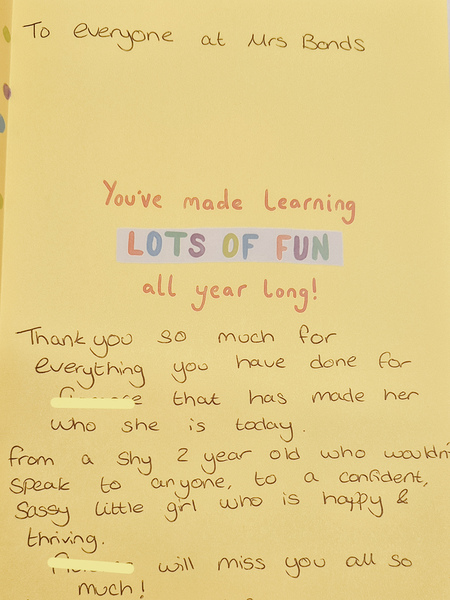 To everyone at Mrs Bonds
You've made learning
LOTS OF FUN
all year long!
Thank you so much for
everything you have done for
that has made her
who she is today.
from a shy 2 year old who wouldn't
speak to anyone, to a confident,
sassy little girl who is happy &
thriving.
will miss you all so
much!